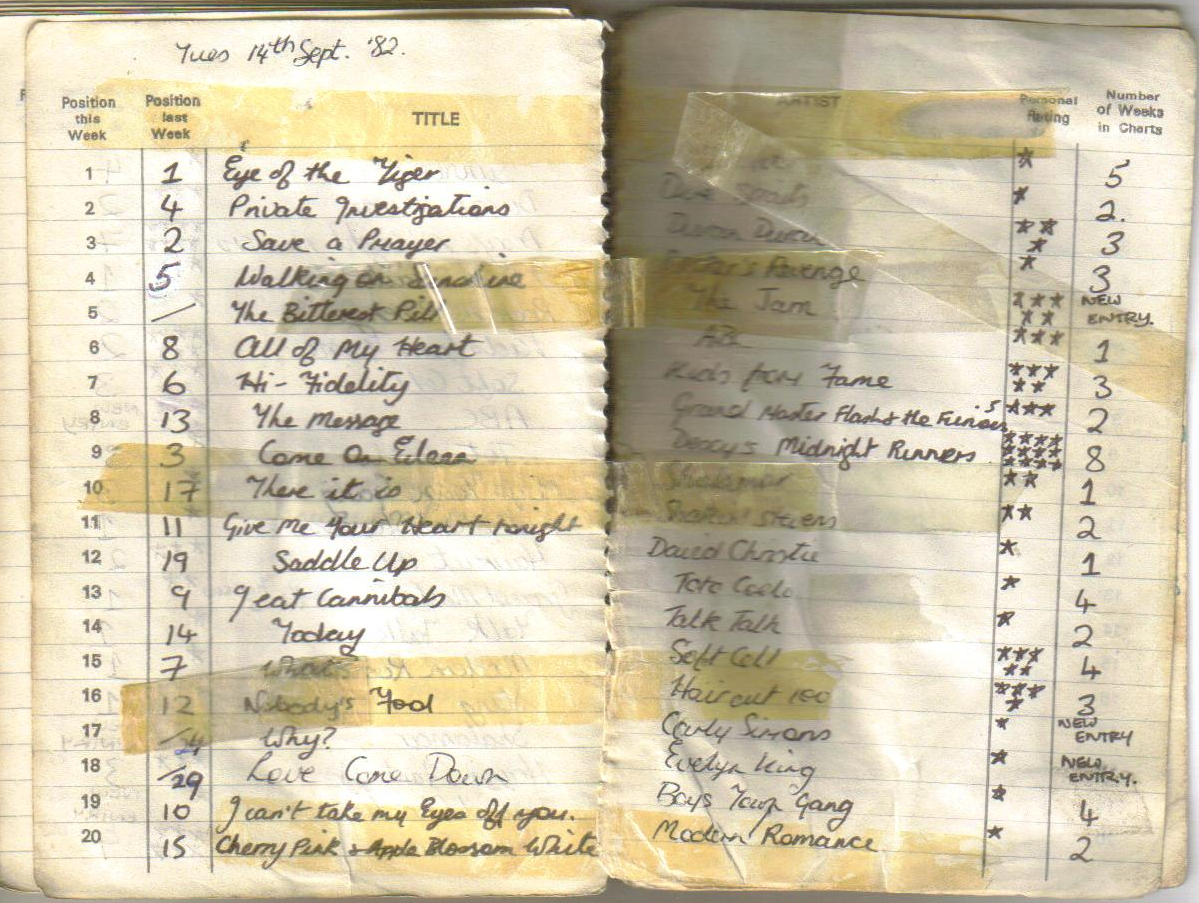 Tues 14th Sept. '82.
Position this Week Position last Week TITLE ARTIST Personal Rating Number of Weeks in Charts
1 1 Eye of the Tiger * 5
2 4 Private Investigations Dire Straits * 2.
3 2 Save a Prayer Duran Duran *** 3
4 5 Walking on Sunshine Revenge * 3
5 / The Bitterest Pill The Jam ***** NEW ENTRY.
6 8 All of My Heart ABC *** 1
7 6 Hi-Fidelity Kids from Fame ***** 3
8 13 The Message Grand Master Flash & the Furious 5 *** 2
9 3 Come On Eileen Dexcys Midnight Runners ************ 8
10 17 There it is Shalamar ** 1
11 11 Give me Your Heart tonight Shakin' Stevens ** 2
12 19 Saddle Up David Christie * 1
13 9 I eat Cannibals Toto Coelo * 4
14 14 Today Talk Talk * 2
15 7 What! Soft Cell ***** 4
16 12 Nobody's Fool Haircut 100 **** 3
17 /24 Why? Carly Simons * NEW ENTRY
18 /29 Love Come Down Evelyn King * NEW ENTRY.
19 10 I can't take my Eyes off you. Boys Town Gang * 4
20 15 Cherry Pink & Apple Blossom White Modern Romance * 2